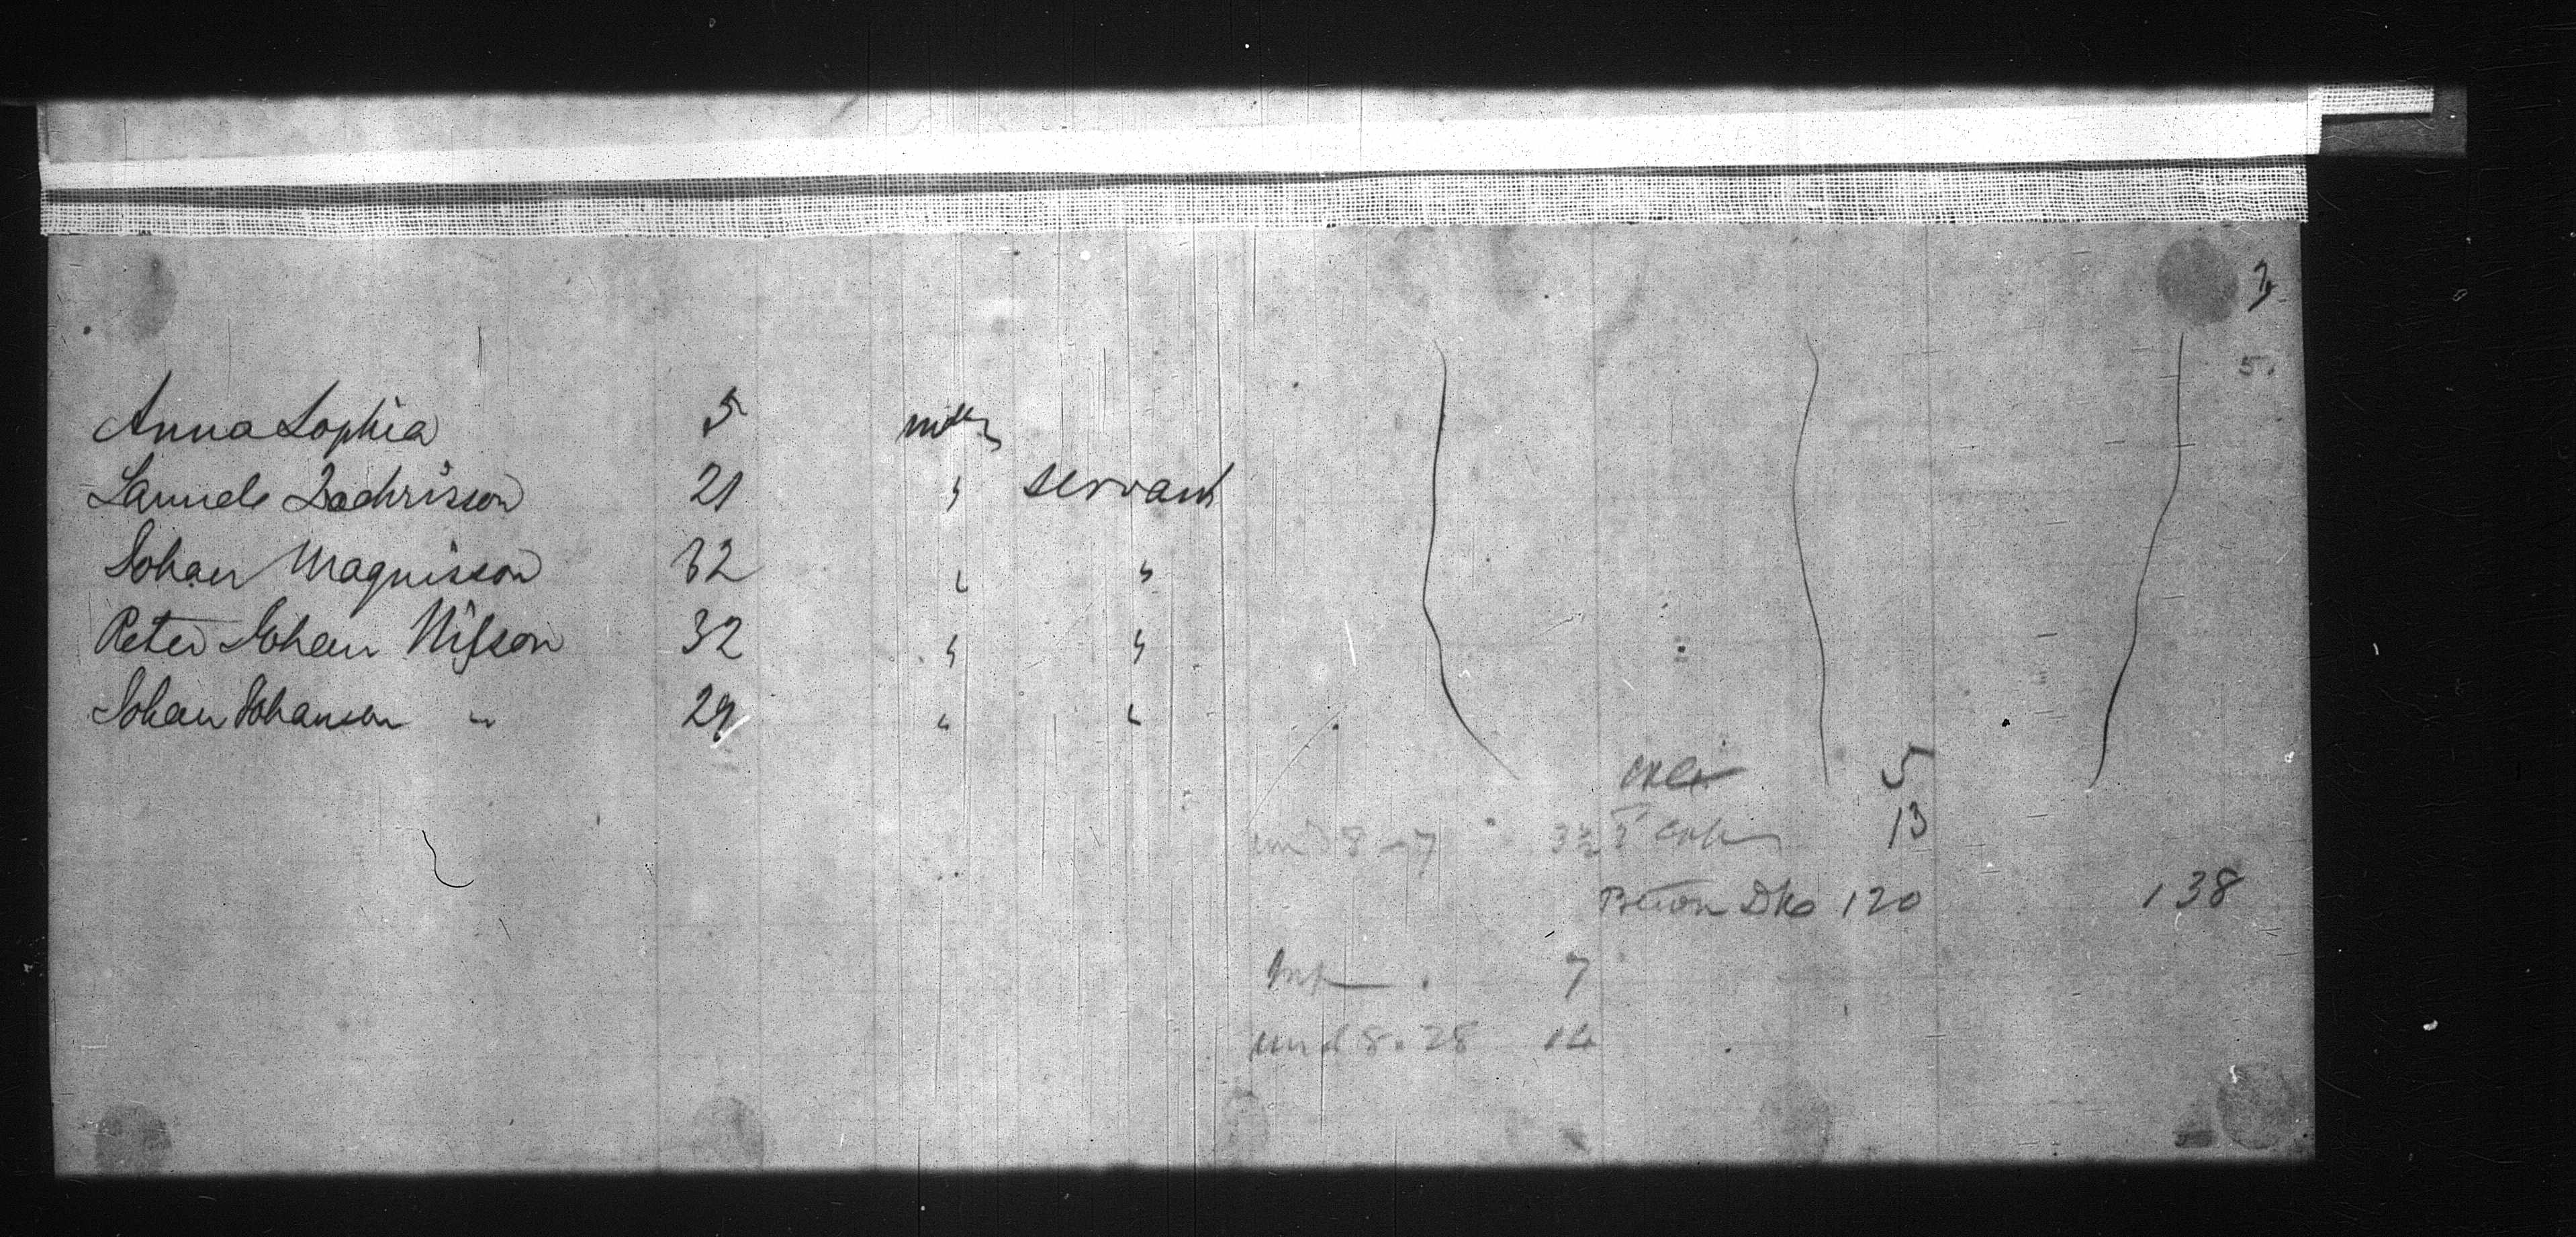 3
5.
Anna Sophia 5
Samuel Zachrisson 21 " servant
Johan Magnisson 32 " "
Peter Johan Nilsson 32 " "
Johan Johansen " 29 " "
5
13
Betwn Dks 120 138
7
und 8. 28 14